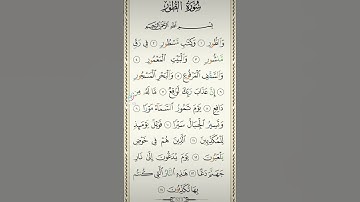 سُورَةُ الطُّورِ
بِسْمِ اللَّهِ الرَّحْمَٰنِ الرَّحِيمِ
وَالطُّورِ ١ وَكِتَابٍ مَسْطُورٍ ٢ فِي رَقٍّ
مَنْشُورٍ ٣ وَالْبَيْتِ الْمَعْمُورِ ٤
وَالسَّقْفِ الْمَرْفُوعِ ٥ وَالْبَحْرِ الْمَسْجُورِ
٦ إِنَّ عَذَابَ رَبِّكَ لَوَاقِعٌ ٧ مَا لَهُ مِنْ
دَافِعٍ ٨ يَوْمَ تَمُورُ السَّمَاءُ مَوْرًا ٩
وَتَسِيرُ الْجِبَالُ سَيْرًا ١٠ فَوَيْلٌ يَوْمَئِذٍ
لِلْمُكَذِّبِينَ ١١ الَّذِينَ هُمْ فِي خَوْضٍ
يَلْعَبُونَ ١٢ يَوْمَ يُدَعُّونَ إِلَىٰ نَارِ
جَهَنَّمَ دَعًّا ١٣ هَٰذِهِ النَّارُ الَّتِي كُنْتُمْ
بِهَا تُكَذِّبُونَ ١٤